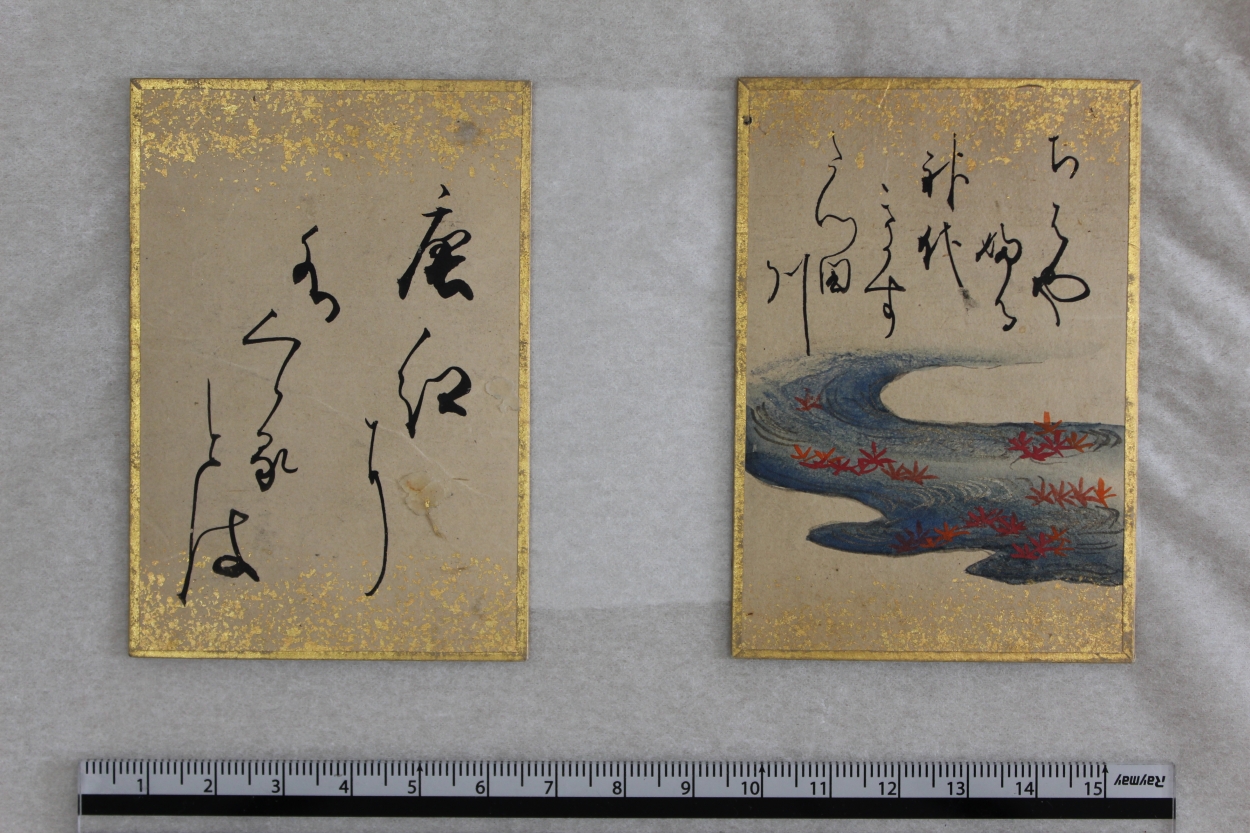 ちはや
婦る
神代
きかす
たつ田
川
唐紅
に
水
くゝる
とは
1 2 3 4 5 6 7 8 9 10 11 12 13 14 15 Raymay